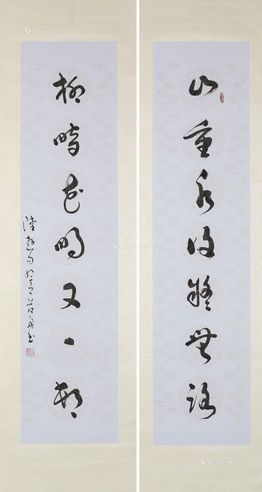 山重水復疑無路
柳暗花明又一邨
陸游句